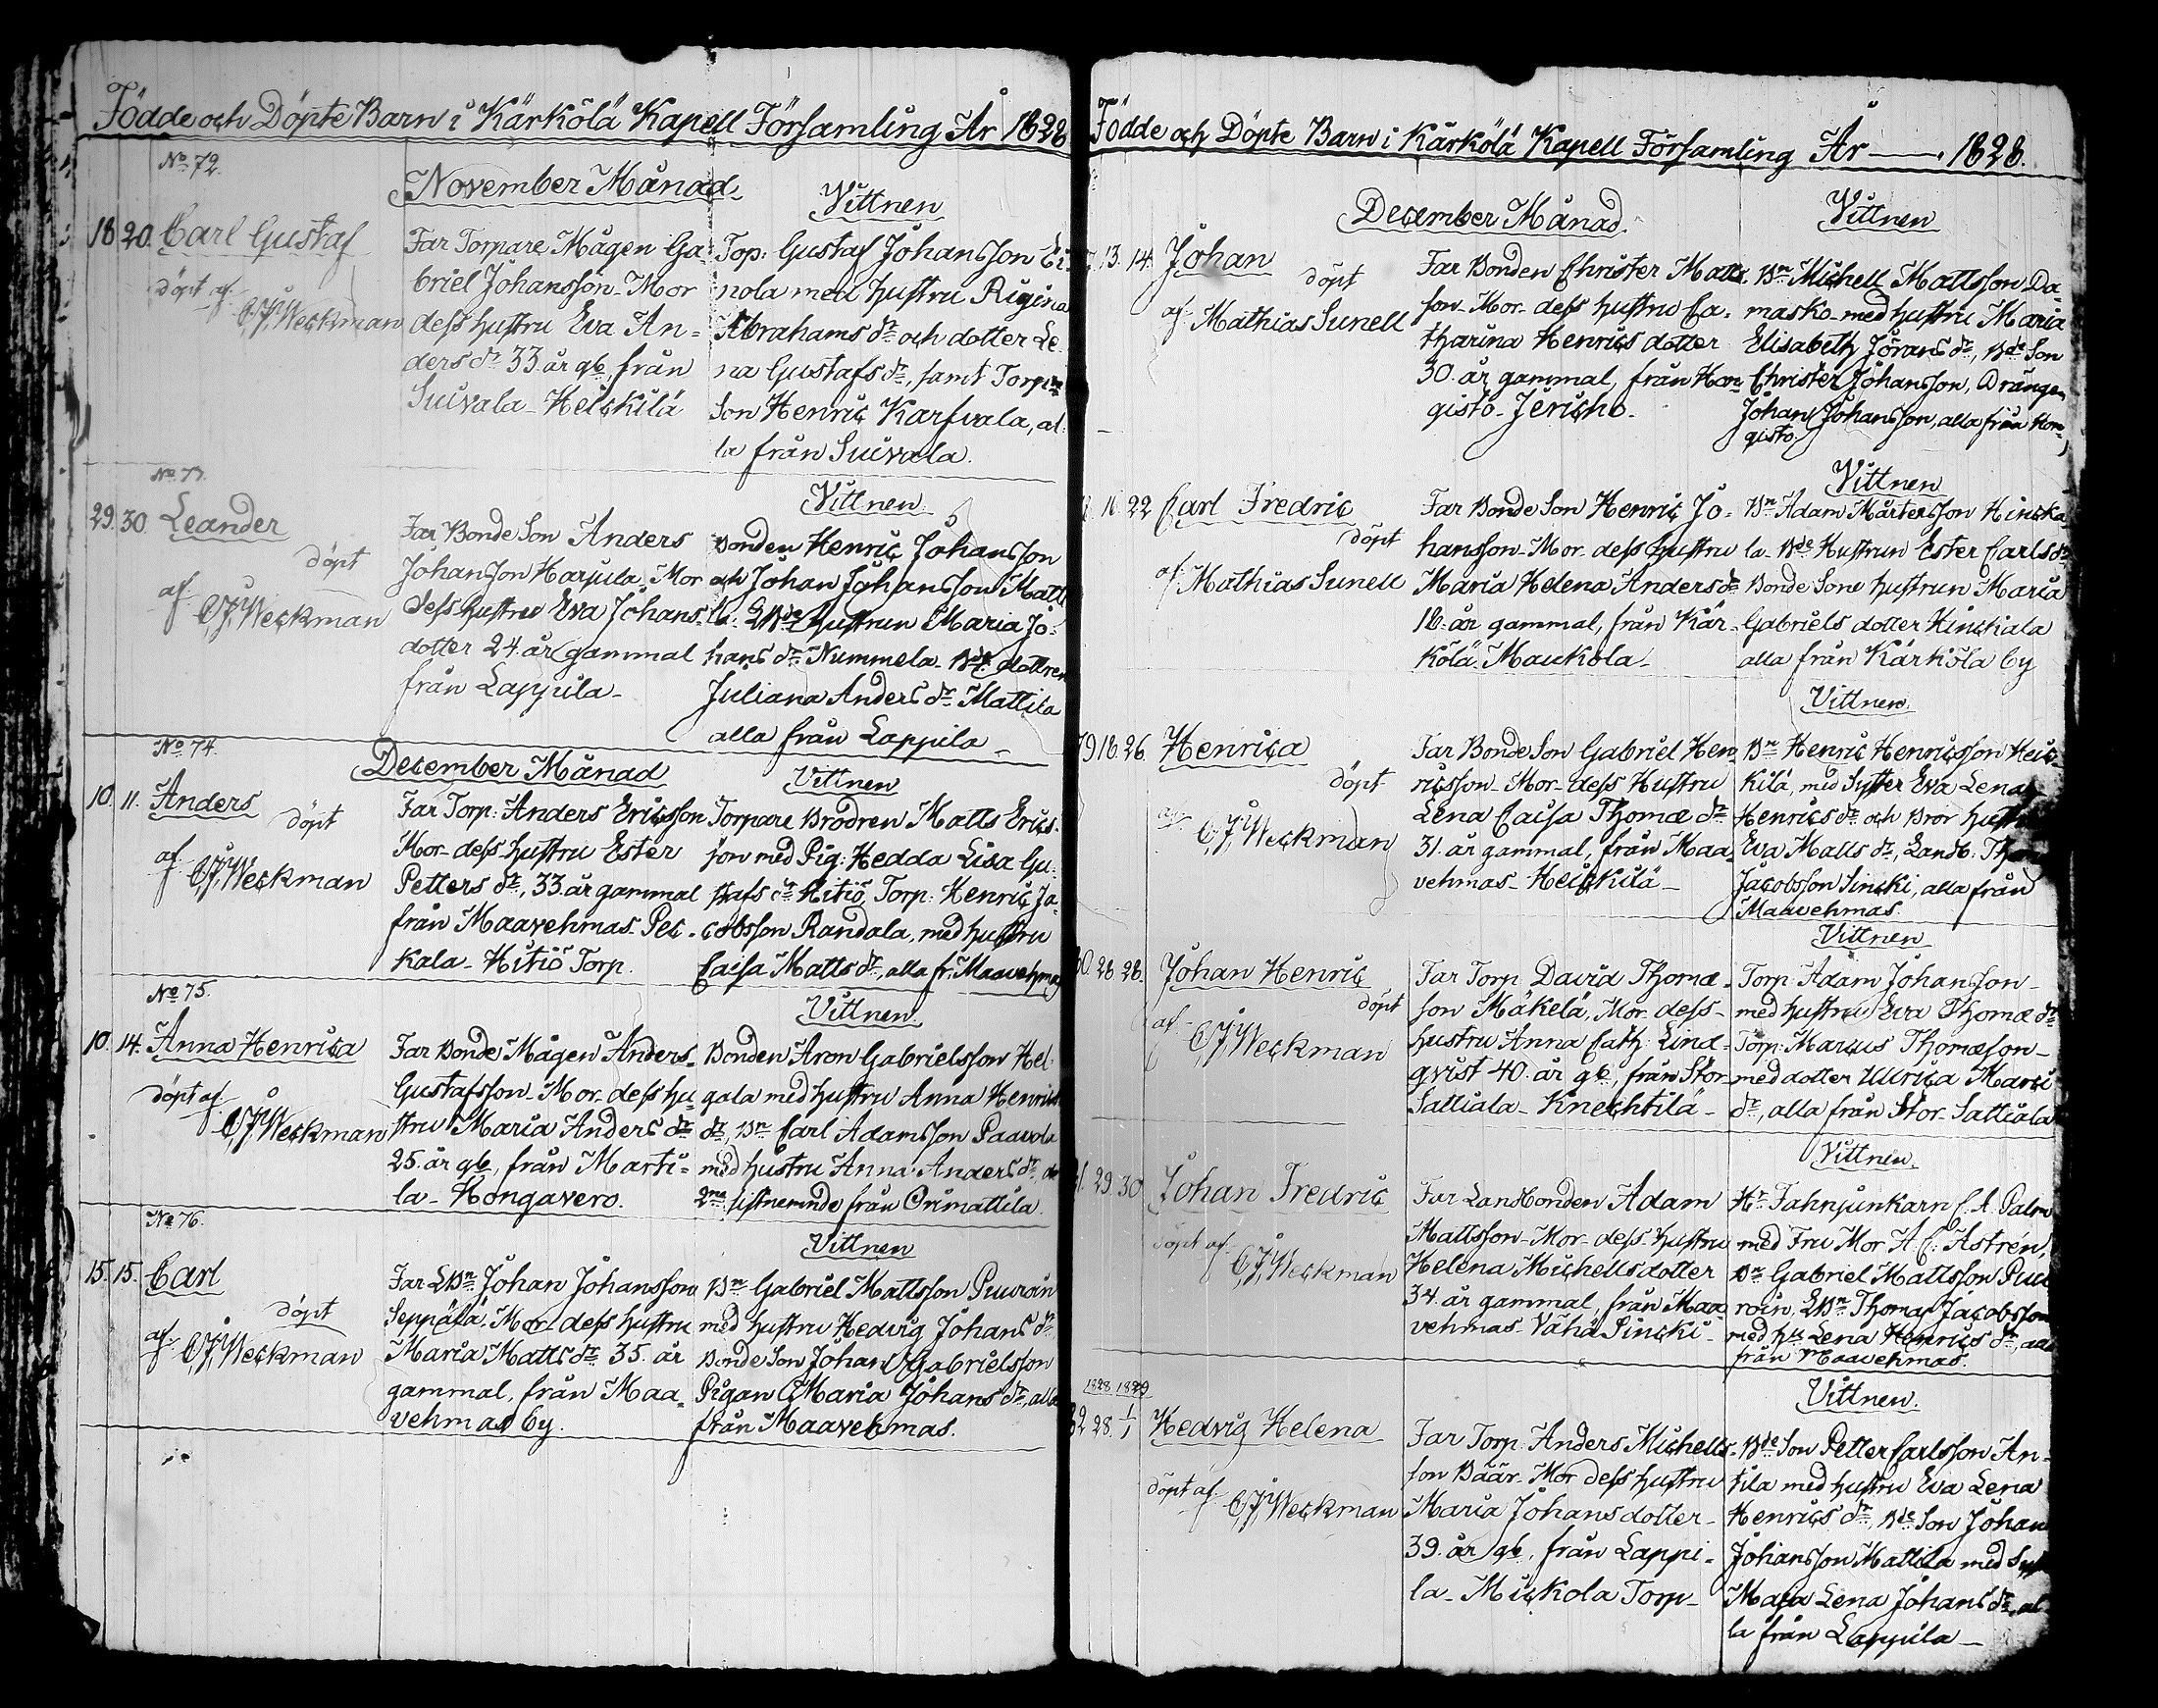 Födde och Döpte Barn i Kärkölä Kapell Församling År 1828
No 72.
November Månad
Vittnen
18 20. Carl Gustaf
döpt af
C.J. Weckman
Far Torpare Mågen Ga-
briel Johansson Mor
dess hustru Eva An-
ders dr 33 år gl, från
Suivala Heickilä
Top: Gustaf Johansson Ei-
nola med hustru Rigina
Abrahams dr och dotter Le-
na Gustafs dr, samt Torp
Son Henric Karfvala, al-
la från Suivala.
No 73.
Vittnen
29. 30. Leander
döpt
af C.J. Weckman
Far Bonde Son Anders
Johansson Harjula, Mor
dess hustru Eva Johans-
dotter 24. år gammal
från Lappila
Bonden Henric Johansson
och Johan Johansson Matti
la. LBde hustrun Maria Jo-
hans dr Nummela. Bde dottren
Juliana Anders dr Mattila
alla från Lappila
No 74.
December Månad
Vittnen
10. 11. Anders
döpt
af C.J. Weckman
Far Torp: Anders Ericsson
Mor dess hustru Ester
Petters dr, 33 år gammal
från Maavehmas Pec-
kala Hitiö Torp.
Torpare Brodren Matts Erics-
son med Pig: Hedda Lisa Gu-
stafs dr Hitiö, Torp: Henric Ja-
cobsson Randala, med hustru
Caisa Matts dr, alla fr: Maavehmas
No 75.
Vittnen
10. 14. Anna Henrica
döpt af
C.J. Weckman
Far Bonde Mågen Anders
Gustafsson Mor dess hu-
stru Maria Anders dr
25 år gl, från Marti-
la Hongavero.
Bonden Aron Gabrielsson Hel-
gala med hustru Anna Henrics
dr, Bn Carl Adamsson Paavola
med hustru Anna Anders dr, de
2ne sistnemnde från Orimattila.
No 76.
Vittnen
15. 15. Carl
döpt
af C.J. Weckman
Far LBn Johan Johansson
Seppälä, Mor dess hustru
Maria Matts dr 35. år
gammal, från Maa-
vehmas by.
Bn Gabriel Mattsson Puuroin
med hustru Hedvig Johans dr
Bonde Son Johan Gabrielsson
Pigan Maria Johans dr, alla
från Maavehmas.
Födde och Döpte Barn i Kärkölä Kapell Församling År 1828.
December Månad.
Vittnen
13. 14. Johan
döpt
af Mathias Sunell
Far Bonden Christer Matts-
son Mor dess hustru Ca-
tharina Henrics dotter
30. år gammal, från Hon-
gisto Jericho.
Bn Michell Mattsson Da-
masko med hustru Maria
Elisabeth Jörans dr, Bde Son
Christer Johansson, Drängen
Johan Johansson, alla från Hon-
gisto
Vittnen
16. 22 Carl Fredric
döpt
af Mathias Sunell
Far Bonde Son Henric Jo-
hansson Mor dess hustru
Maria Helena Anders dr
18. år gammal, från Kär-
kölä Mauckola
Bn Adam Mårtensson Hincka
la. Bde Hustrun Ester Carls dr
Bonde Sone hustrun Maria
Gabriels dotter Hinckiala
alla från Kärkölä by
Vittnen
79 18. 26. Henrica
döpt
af C.J. Weckman
Far Bonde Son Gabriel Hen-
ricsson Mor dess Hustru
Lena Caisa Thomæ dr
31. år gammal, från Maa-
vehmas Heickilä
Bn Henric Henricsson Heic-
kilä, med Syster Eva Lena
Henrics dr och Bror hustru
Eva Matts dr, Landb. Thom
Jacobsson Sincki, alla från
Maavehmas.
Vittnen
80. 28 28. Johan Henric
döpt
af C.J. Weckman
Far Torp David Thomæ-
son Mäkelä, Mor dess
hustru Anna Cath: Lind-
qvist 40. år gl, från Stor
Sattiala Knechtilä
Torp: Adam Johansson
med hustru Eva Thomæ dr
Torp: Marcus Thomæson
med dotter Ulrica Marci
dr, alla från Stor Sattiala
Vittnen.
81. 29. 30 Johan Fredric
döpt af
C.J. Weckman
Far Landbonden Adam
Mattsson Mor dess hustru
Helena Michellsdotter
34. år gammal, från Maa
vehmas Vähä Sincki
Hr Fahnjunkarn C. A. Palm
med Fru Mor A. C. Astrén,
Bn Gabriel Mattsson Puu
roin, LBn Thomas Jacobsson
med hu Lena Henrics dr, alla
från Maavehmas.
Vittnen.
1828 1829
82 28. 1/1 Hedvig Helena
döpt af
C.J. Weckman
Far Torp: Anders Michells-
son Bäär. Mor dess hustru
Maria Johans dotter
39. år gl, från Lappi-
la Mickola Torp
Bde Son Petter Carlsson An-
tila med hustru Eva Lena
Henrics dr, Bde Son Johan
Johansson Mattila med Syst
Maja Lena Johans dr, al-
la från Lappila